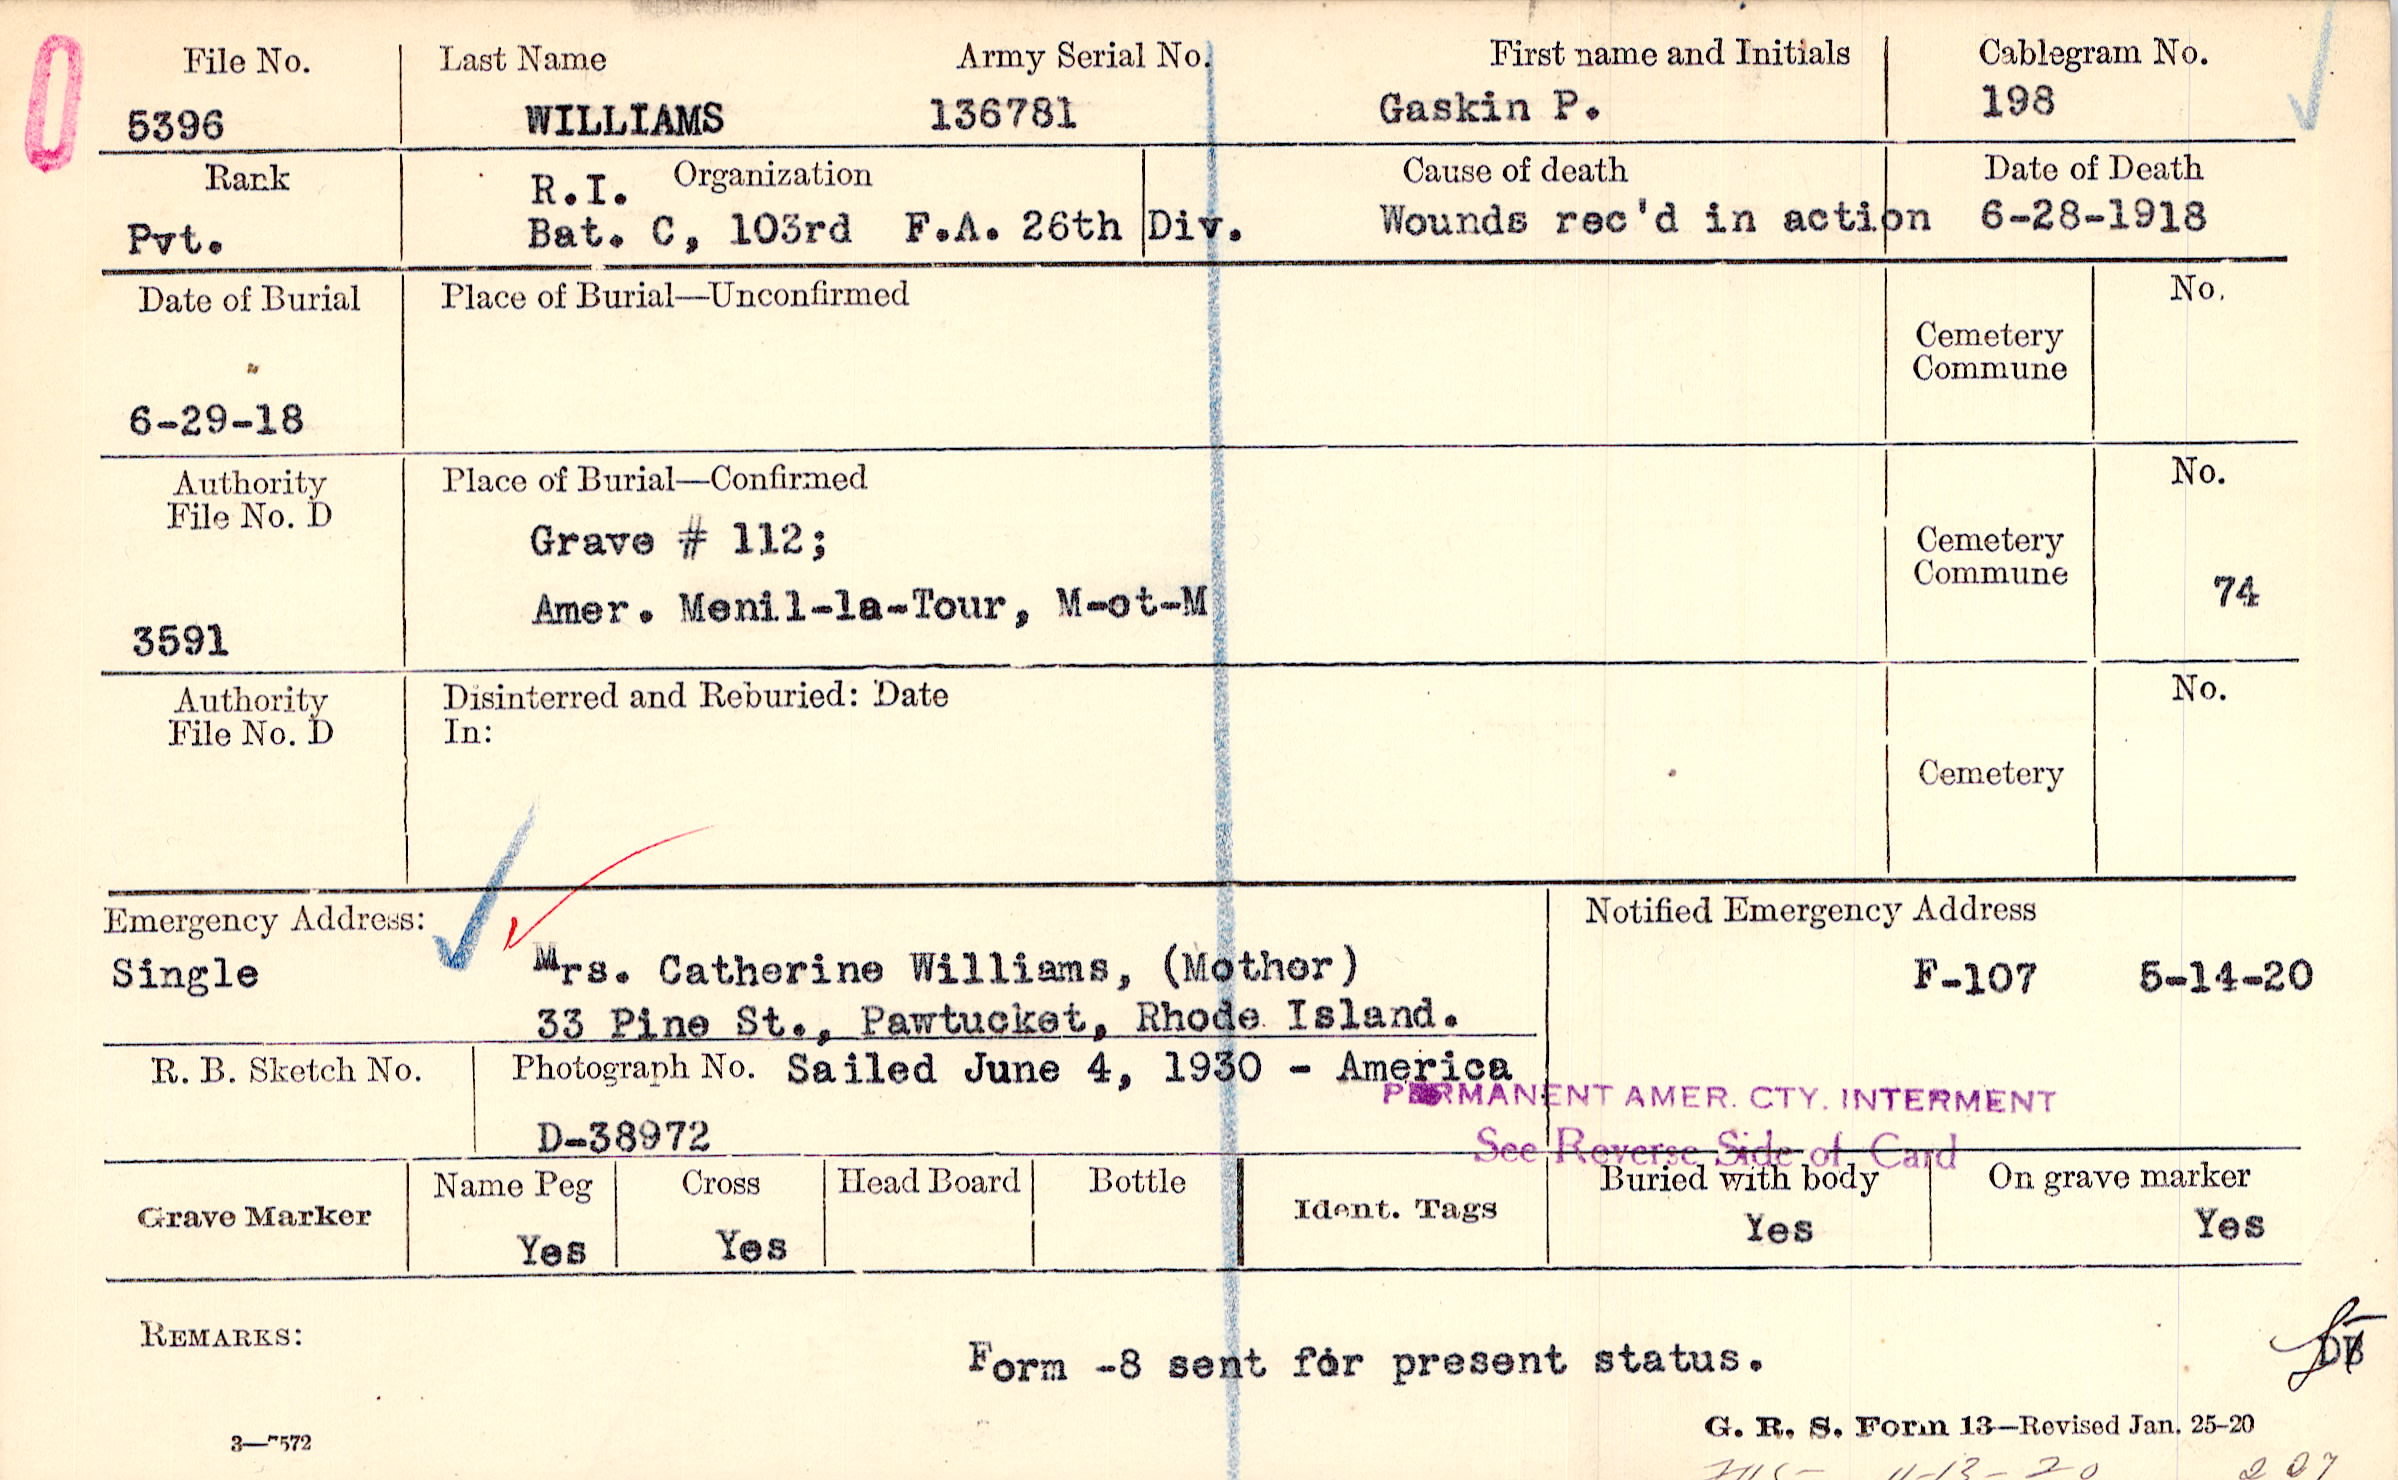 File No. Last Name Army Serial No. First name and Initials Cablegram No.
5396 WILLIAMS 136781 Gaskin P. 198
Rank Organization Cause of death Date of Death
R.I.
Pvt. Bat. C, 103rd F.A. 26th Div. Wounds rec'd in action 6-28-1918
Date of Burial Place of Burial—Unconfirmed No.
Cemetery
Commune
6-29-18
Authority Place of Burial—Confirmed No.
File No. D
Grave # 112; Cemetery
Commune
Amer. Menil-la-Tour, M-et-M 74
3591
Authority Disinterred and Reburied: Date No.
File No. D In:
Cemetery
Emergency Address: Notified Emergency Address
Single Mrs. Catherine Williams, (Mother) F-107 5-14-20
33 Pine St., Pawtucket, Rhode Island.
R. B. Sketch No. Photograph No. Sailed June 4, 1930 - America
PERMANENT AMER. CTY. INTERMENT
D-38972
See Reverse Side of Card
Grave Marker Name Peg Cross Head Board Bottle Ident. Tags Buried with body On grave marker
Yes Yes Yes Yes
REMARKS:
Form -8 sent for present status.
G. R. S. Form 13—Revised Jan. 25-20
3—7572
11-13-20 227